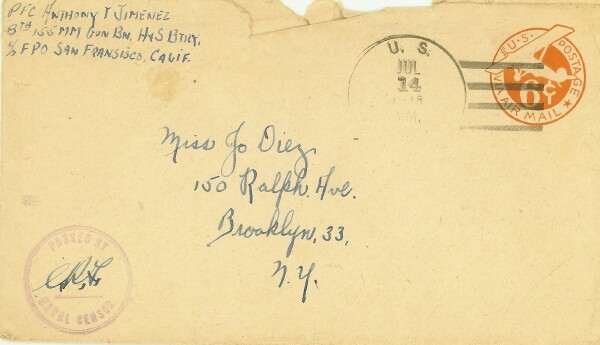 PFC ANTHONY T JIMENEZ
8TH 155 MM GUN BN, H&S BTRY,
c/o FPO SAN FRANSISCO, CALIF.
U. S.
JUL
14
M.
U.S. POSTAGE
6¢
VIA AIR MAIL
Miss Jo Diez
150 Ralph Ave.
Brooklyn, 33,
N.Y.
PASSED BY
NAVAL CENSOR